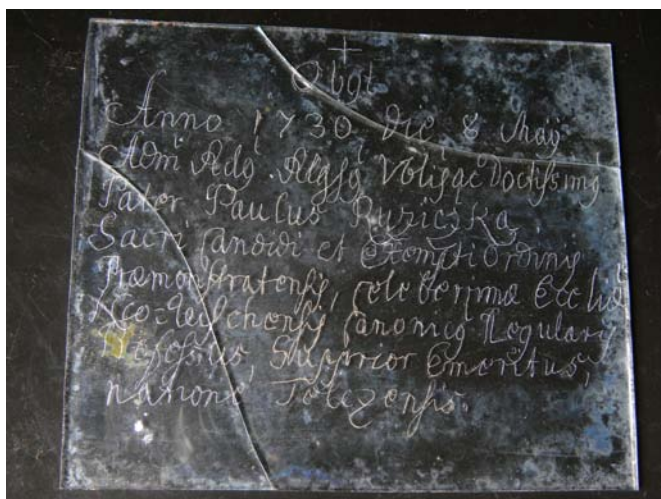 +
Obyt
Anno 1730 die 8 May
Adm Rdg Rlgsg ac Doctissimg
Pater Paulus Ruziczka
Sacri Candidi et Exempti Ordinis
Præmonstratensis, celeberimæ Eccliæ
Canonicg Regularis
Professus, Superior Emeritus,
natione Telczensis.